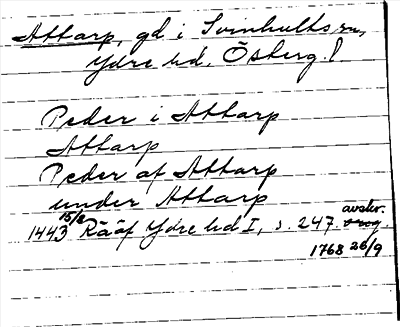 Attarp, gd i Svinhults sn,
Ydre hd, Österg.l
Peder i Attarp
Attarp
Peder af Attarp
under Attarp
1443 15/8 Rääf Ydre hd I, s. 247. avskr. orig.
1768 26/9